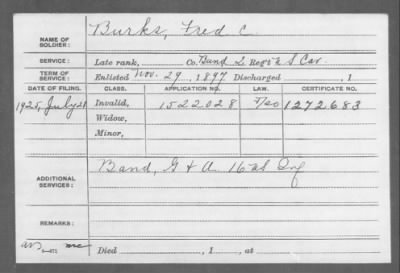 NAME OF SOLDIER: Burks, Fred C.
SERVICE: Late rank, Co. Band 2 Reg't U S Cav.
TERM OF SERVICE: Enlisted Nov. 29, 1897 Discharged , 1
DATE OF FILING. CLASS. APPLICATION NO. LAW. CERTIFICATE NO.
1925, July 21 Invalid, 1522028 1272683
Widow,
Minor,
ADDITIONAL SERVICES: Band, G & A 16 US Inf
REMARKS:
Died , 1 , at